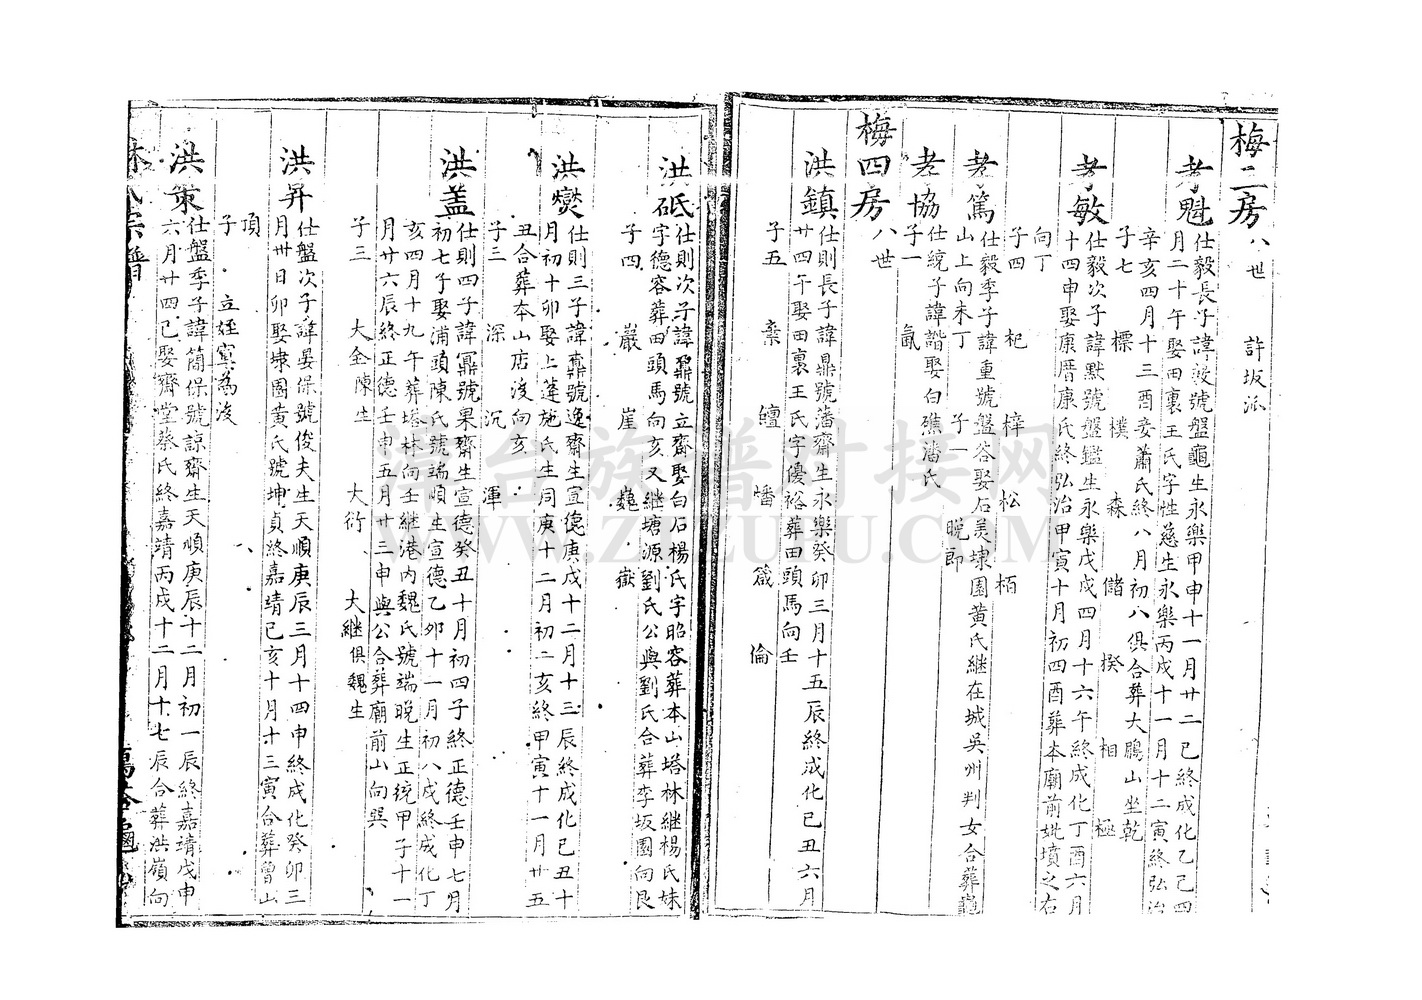 梅二房 八世 許坂派
孝魁 仕毅長子諱毅號盤龜生永樂甲申十一月廿二巳終成化乙巳四
月二十午娶田裏王氏字性慈生永樂丙戌十一月十二寅終弘治
辛亥四月十三酉妾蕭氏終八月初八俱合葬大鵬山坐乾
子七 標 樸 森 儲 揆 相 極
孝敏 仕毅次子諱默號盤鑑生永樂戊戌四月十六午終成化丁酉六月
十四申娶康厝康氏終弘治甲寅十月初四酉葬本廟前妣墳之右
向丁
子四 杞 梓 松 栢
孝篤 仕毅季子諱重號盤谷娶石美埭園黃氏継在城吳州判女合葬龜
山上向未丁 子一 晚郎
孝協 仕統子諱諧娶白礁潘氏
子一 氤
梅四房 八世
洪鎮 仕則長子諱鼎號潘齋生永樂癸卯三月十五辰終成化己丑六月
廿四午娶田裏王氏字優裕葬田頭馬向壬
子五 棄 䵊 皤 箴 倫
洪砥 仕則次子諱鼐號立齋娶白石楊氏字昭容葬本山塔林継楊氏妹
字德容葬田頭馬向亥又継塘源劉氏公與劉氏合葬李坂園向艮
子四 巖 崖 巍 嶽
洪爕 仕則三子諱鼒號逸齋生宣德庚戌十二月十三辰終成化己丑十
月初十卯娶上蓮施氏生同庚十二月初二亥終甲寅十一月廿五
丑合葬本山店後向亥
子三 深 沉 渾
洪盖 仕則四子諱鼏號果齋生宣德癸丑十月初四子終正德壬申七月
初七子娶浦頭陳氏號端順生宣德乙卯十一月初八戌終成化丁
亥四月十九午葬塔林向壬継港内魏氏號端晚生正統甲子十一
月廿六辰終正德壬申五月廿三申與公合葬廟前山向巽
子三 大金陳生 大衍 大継俱魏生
洪昇 仕盤次子諱晏保號俊夫生天順庚辰三月十四申終成化癸卯三
月卅日卯娶埭園黃氏號坤貞終嘉靖己亥十月十三寅合葬曾山
項
子 立姪寅為後
洪策 仕盤季子諱簡保號諒齋生天順庚辰十二月初一辰終嘉靖戊申
六月廿四巳娶齋堂蔡氏終嘉靖丙戌十二月十七辰合葬洪嶺向
林氏宗譜
WWW.ZTZUPU.COM